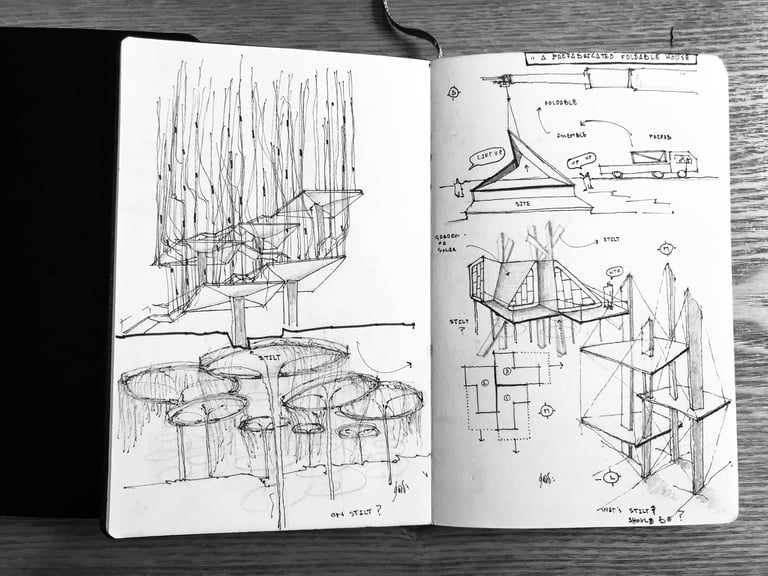 STILT
ON STILT ?
A PREFABRICATED FOLDABLE HOUSE
FOLDABLE
ASSEMBLE
PREFAB
LIFT UP
UP UP
SITE
GARDEN
OR
SOLAR
STILT
WTF
STILT
?
THAT'S STILT?
SHOULD BE ?